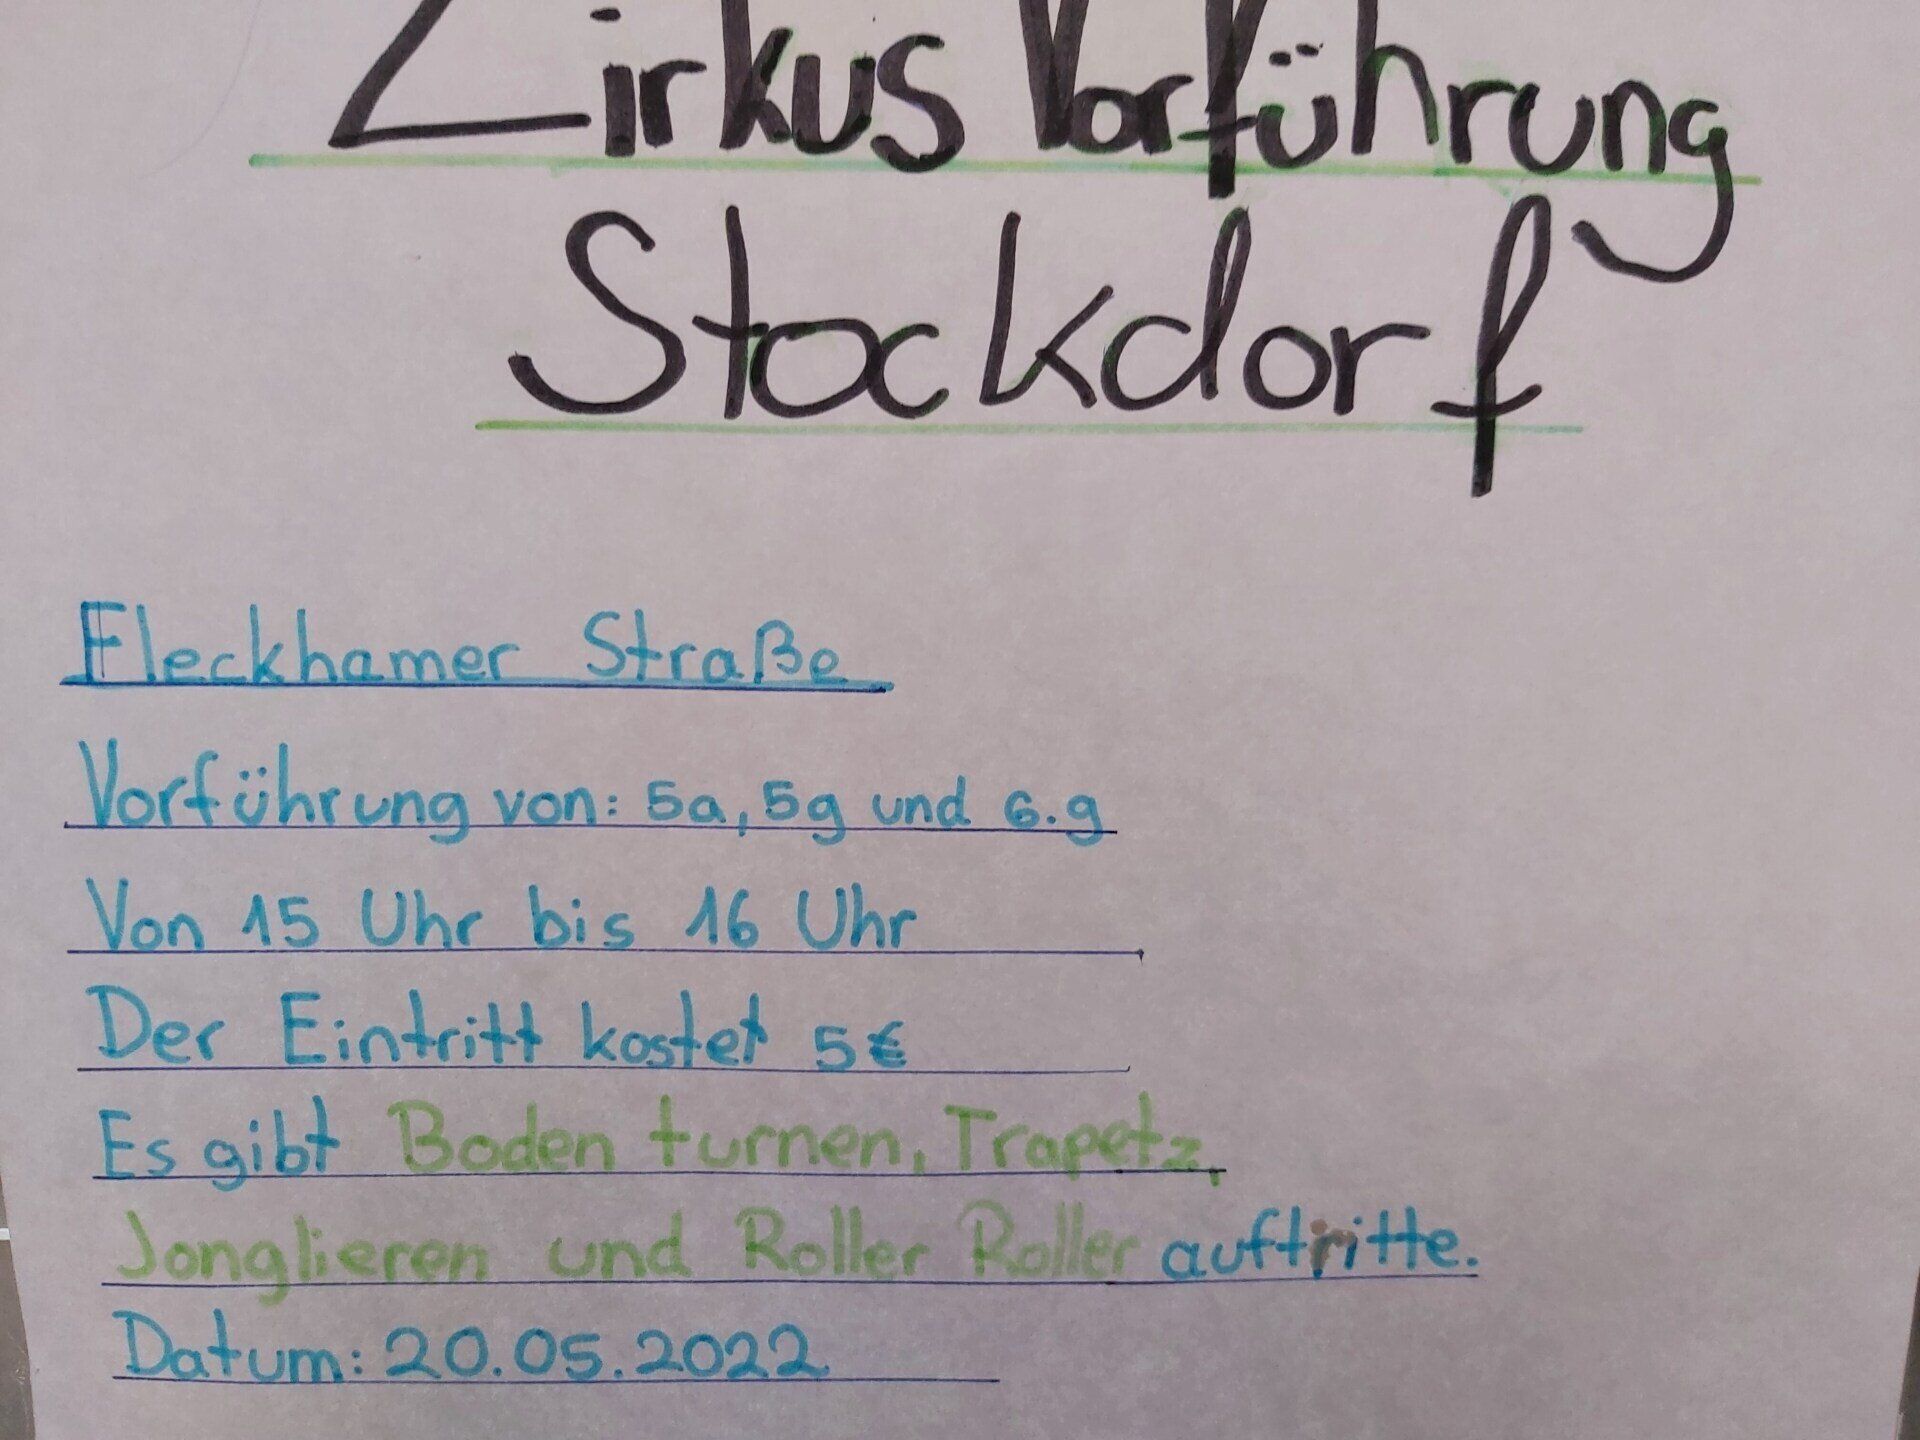 Zirkus Vorführung
Stockdorf
Fleckhamer Straße
Vorführung von: 5a, 5g und 6.g
Von 15 Uhr bis 16 Uhr
Der Eintritt kostet 5€
Es gibt Boden turnen, Trapetz,
Jonglieren und Roller Roller auftritte.
Datum: 20.05.2022